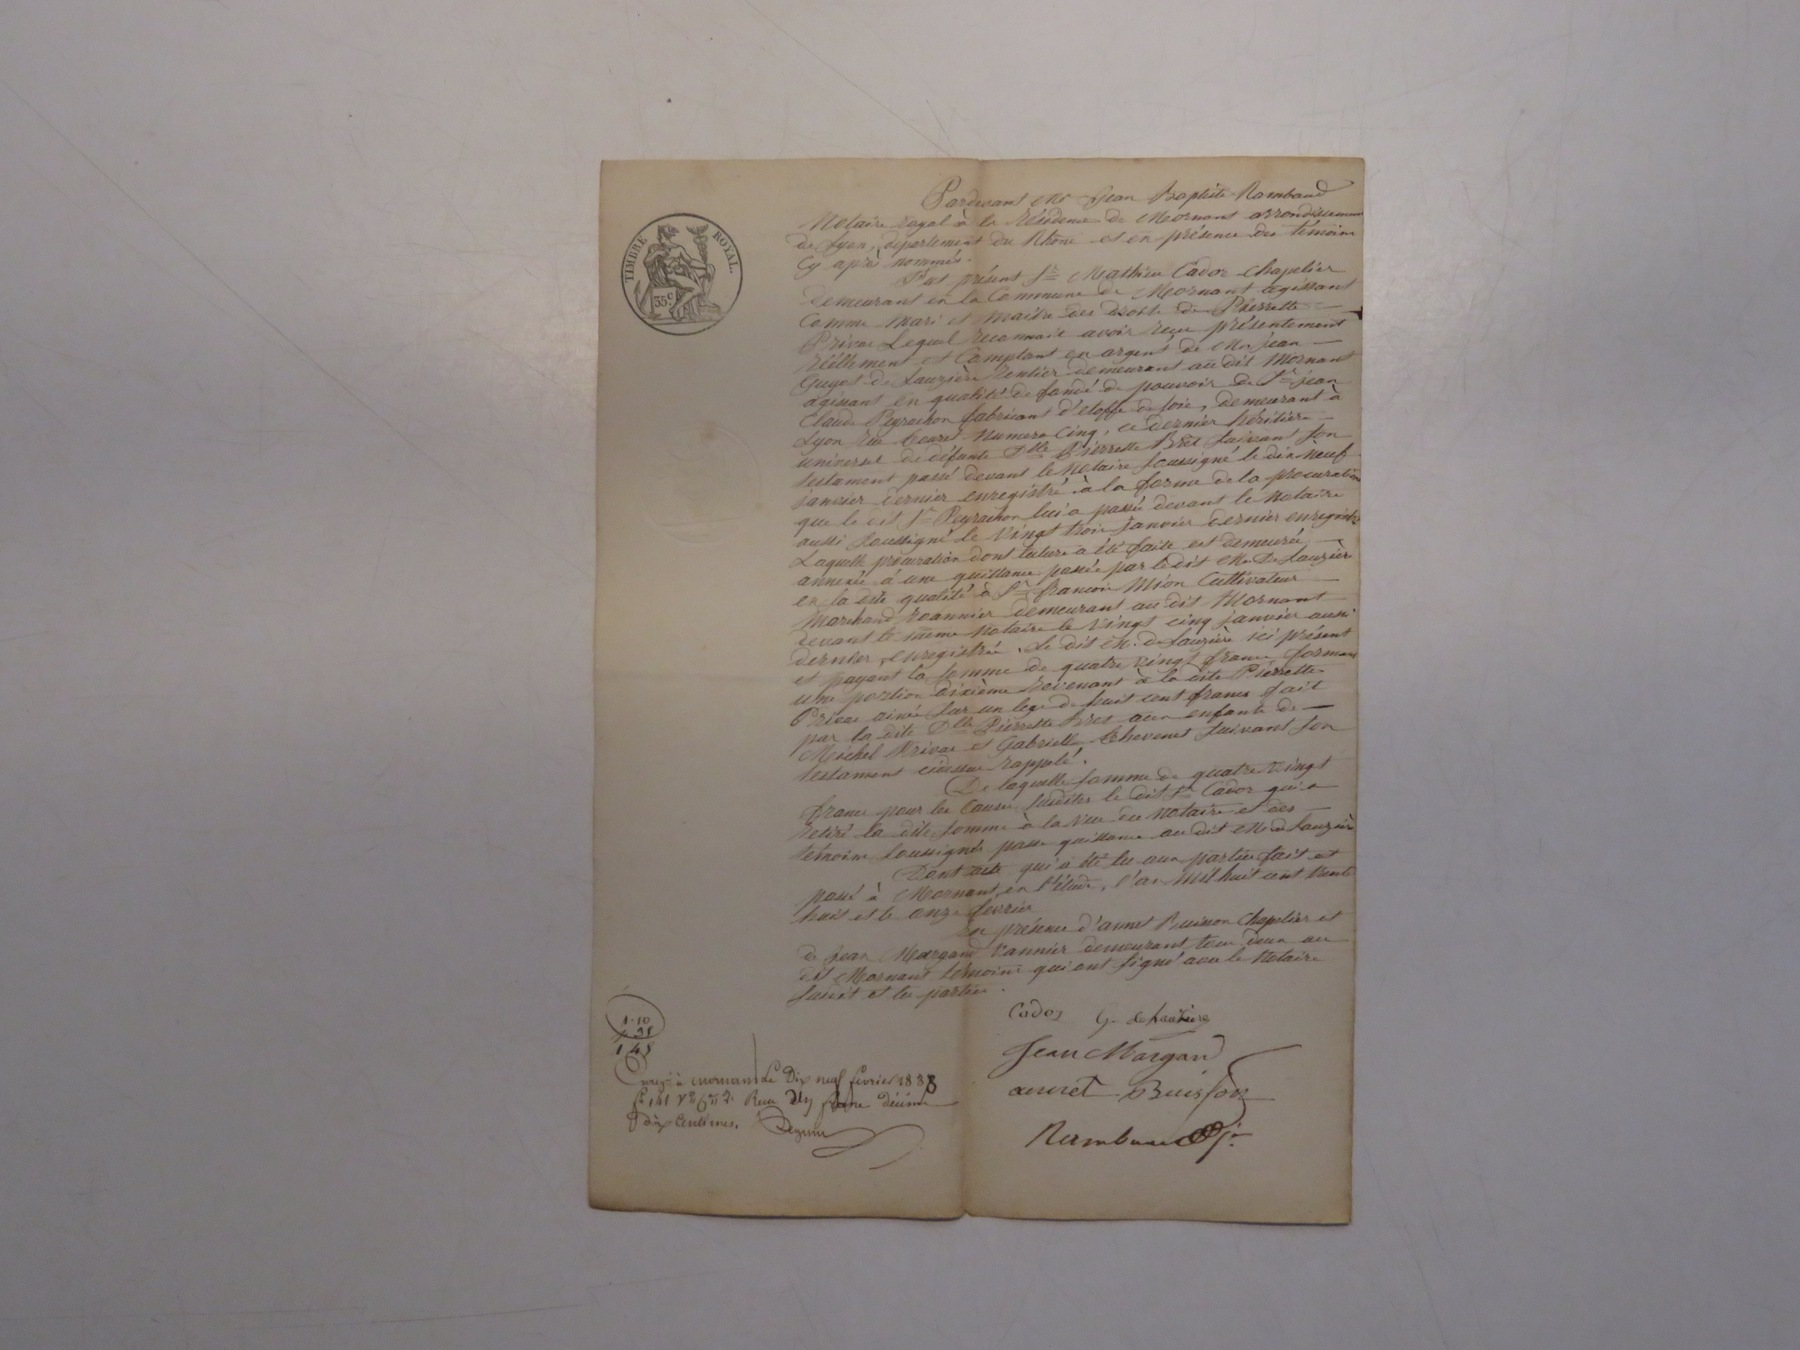 TIMBRE ROYAL.
35 c.
Pardevant Me Jean Baptiste Rambaud
Notaire royal à la résidence de Mornant arrondissement
de Lyon, département du Rhône et en présence des témoins
cy après nommés.
Fut présent Sr Mathieu Cador chapelier
demeurant en la Commune de Mornant agissant
comme mari et maitre des droits de Pierrette
Privas Lequel reconnait avoir reçu présentement
réellement et Comptant en argent de Mr Jean
Guyot de Lauzière Rentier demeurant au dit Mornant
agissant en qualité de fondé de pouvoir de Sr jean
Claude Peyrachon fabricant d'étoffe de soie, demeurant à
Lyon rue numéro cinq, ce dernier héritier
universel de défunte Dlle Pierrette Bret suivant son
testament passé devant le Notaire soussigné le dix neuf
janvier dernier enregistré à la forme de la procuration
que le dit Sr Peyrachon lui a passée devant le notaire
aussi soussigné le vingt trois janvier dernier enregistrée
Laquelle procuration dont lecture a été faite est demeurée
annexée à une quittance passée par le dit Mr De Lauzière
en sa dite qualité à Sr françois Mion Cultivateur
Marchand demeurant au dit Mornant
devant le même notaire le vingt cinq janvier aussi
dernier, enregistrée. Le dit M. de Lauzière ici présent
et payant la somme de quatre vingt francs formant
une portion dixième revenant à la dite Pierrette
Privas ainée sur un legs de huit cent francs fait
par la dite Dlle Pierrette Bret aux enfants de
Michel Privas et Gabrielle Thevenet suivant son
testament cidessus rappelé.
De laquelle somme de quatre vingt
francs pour les causes susdites le dit Sr Cador qui a
retiré la dite somme à la vue du notaire et des
témoins soussignés passe quittance au dit Mr de Lauzière
Dont acte qui a été lu aux parties fait et
passé à Mornant en l'étude, l'an mil huit cent trente
huit et le onze février
En présence d'annet Buisson Chapelier et
de Jean Margand Vannier demeurant tous deux au
dit Mornant témoins qui ont signé avec le Notaire
susdit et les parties.
Cador G. de Lauzière
Jean Margand
annet Buisson
Rambaud
1.10
35
1 45
Enregé à mornant Le Dix neuf fevrier 1838
fo 141 Reçu un franc décime
dix Centimes.